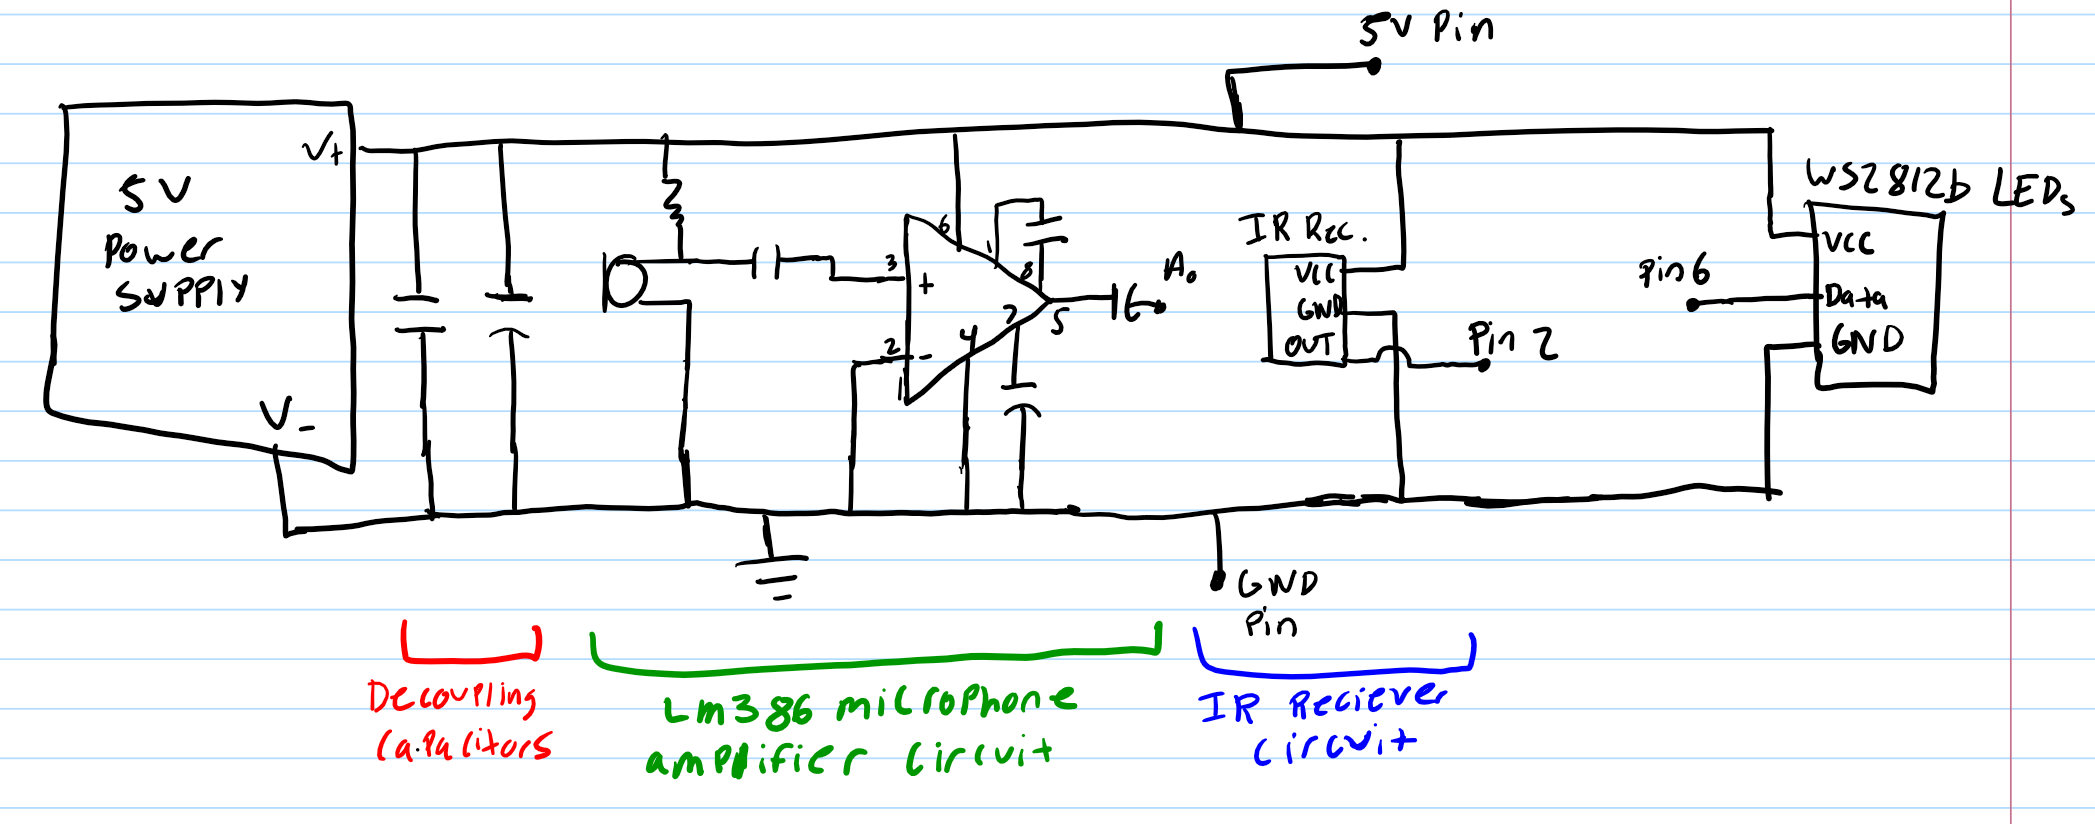 5V Pin
V+
5V
Power
SUPPLY
V-
3
+
2
-
6
1
8
7
4
5
A0
IR Rec.
VCC
GND
OUT
Pin 2
WS2812b LEDs
VCC
Pin 6
Data
GND
GND
Pin
Decoupling
Capacitors
Lm386 microphone
amplifier circuit
IR Reciever
circuit